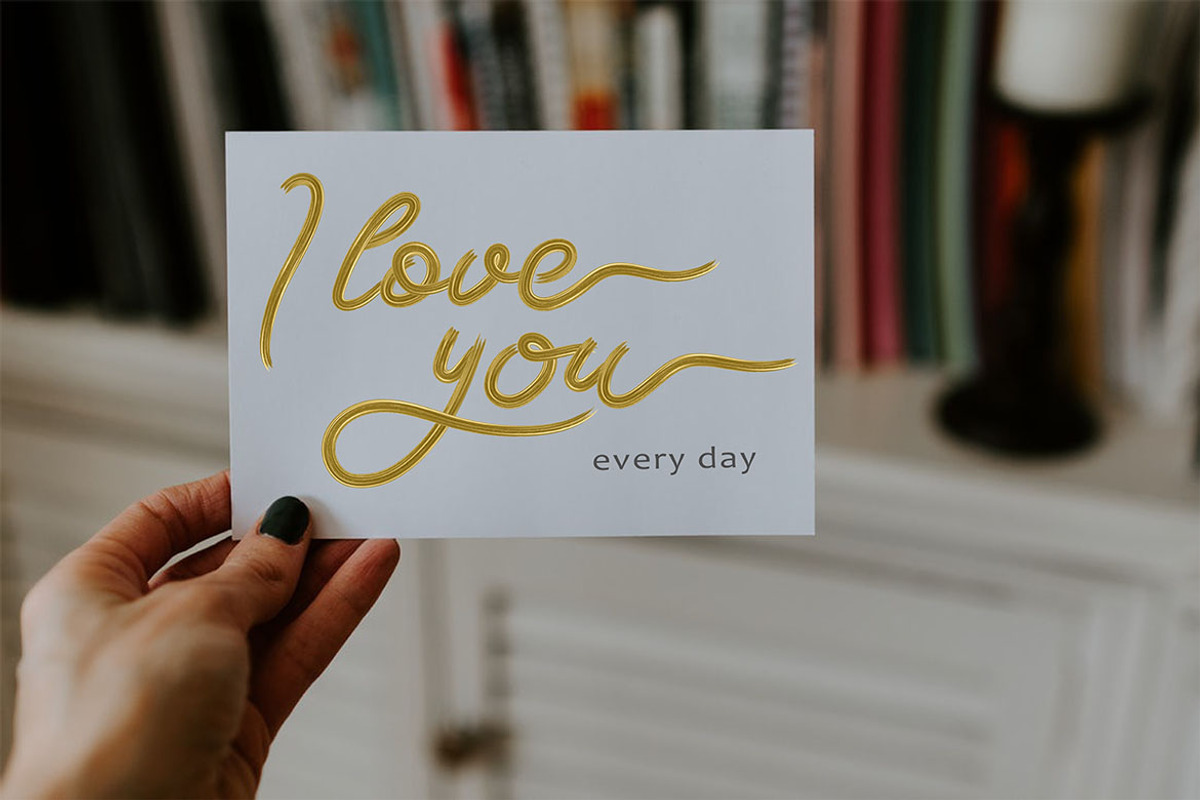 I love
you
every day